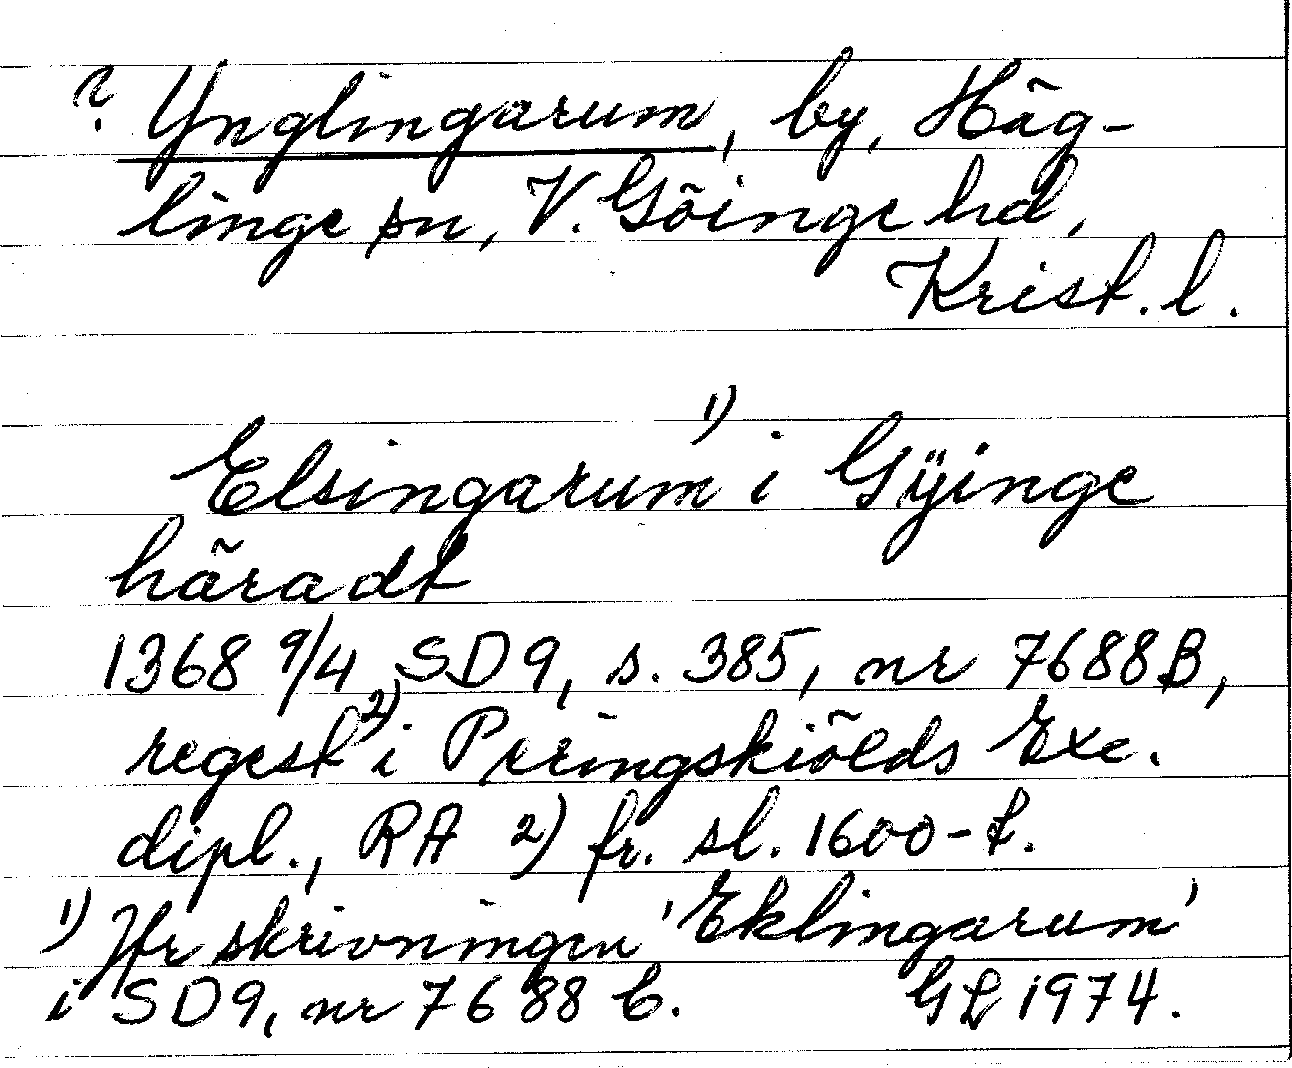 ? Ynglingarum, by, Häg-
linge sn, V. Göinge hd,
Krist. l.
Elsingarum 1) i Gÿinge
häradt
1368 9/4 SD9, s. 385, nr 7688B,
regest 2) i Peringskiölds Exc.
dipl., RA 2) fr. sl. 1600-t.
1) Jfr skrivningen 'Eklingarum'
i SD9, nr 7688 C. GL 1974.